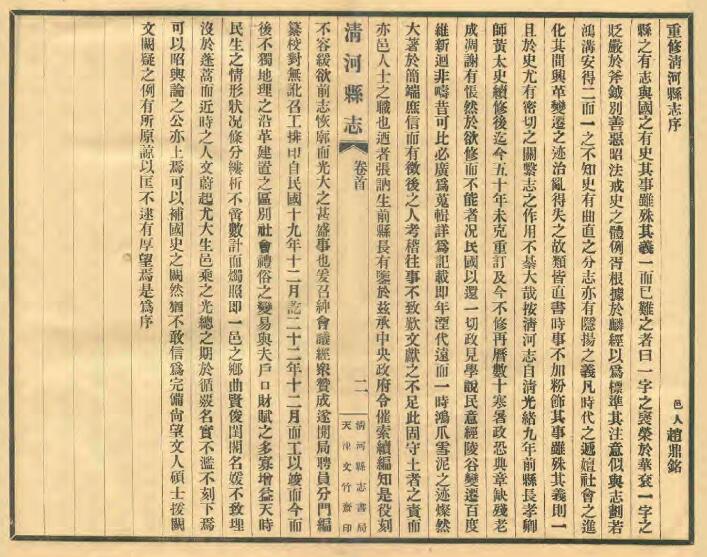 重修清河縣志序
邑人趙鼎銘
縣之有志與國之有史其事雖殊其義一而已難之者曰一字之褒榮於華袞一字之
貶嚴於斧鉞別善惡昭法戒史之體例胥根據於麟經以爲標準其注意似與志劃若
鴻溝安得二而一之不知史有曲直之分志亦有隱揚之義凡時代之遞嬗社會之進
化其間興革變遷之迹治亂得失之故類皆直書時事不加粉飾其事雖殊其義則一
且於史尤有密切之關繫志之作用不綦大哉按淸河志自清光緒九年前縣長孝卿
師黃太史續修後迄今五十年未克重訂及今不修再曆數十寒暑政恐典章缺殘老
成凋謝有悵然於欲修而不能者況民國以還一切政見學說民意經陵谷變遷百度
維新迥非疇昔可比必廣爲蒐輯詳爲記載即年湮代遠而一時鴻爪雪泥之迹燦然
大著於簡端庶信而有徵後之人考稽往事不致歎文獻之不足此固守土者之責而
亦邑人士之職也迺者張訥生前縣長有鑒於茲承中央政府令催索續編知是役刻
清河縣志
卷首
二
清河縣志書局
天津文竹齋印
不容緩欲前志恢廓而光大之甚盛事也爰召紳會議經衆贊成遂開局聘員分門編
纂校對無訛召工排印自民國十九年十二月訖二十二年十二月而工以竣而今而
後不獨地理之沿革建置之區別社會禮俗之變易與夫戶口財賦之多寡增益天時
民生之情形狀况條分縷析不啻數計而燭照即一邑之鄉曲賢俊閨閫名媛不致埋
沒於蓬蒿而近時之人文蔚起尤大生邑乘之光總之期於循覈名實不濫不刻下焉
可以昭輿論之公亦上焉可以補國史之闕然猶不敢信爲完備尙望文人碩士援闕
文闕疑之例有所原諒以匡不逮有厚望焉是爲序